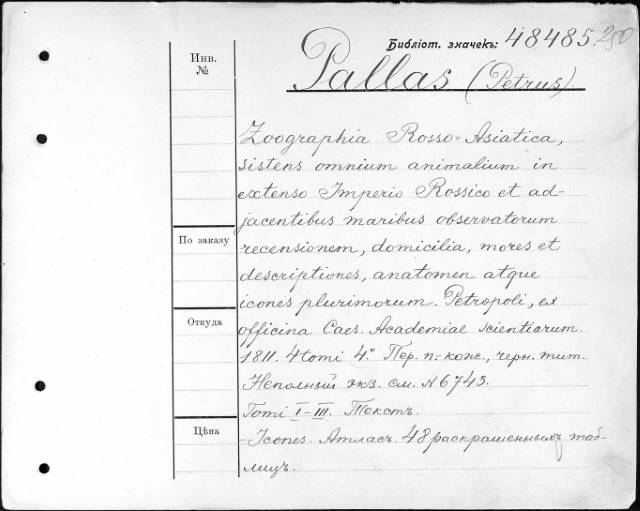 Библіот. значекъ: 48485.
Инв.
№
Pallas (Petrus)
Zoographia Rosso=Asiatica,
sistens omnium animalium in
extenso Imperio Rossico et ad-
jacentibus maribus observatorum
recensionem, domicilia, mores et
descriptiones, anatomen atque
icones plurimorum. Petropoli, ex
officina Caes. Academiae Scientiarum.
1811. 4 tomi 4.° Пер. п.-кож., черн. тит.
Неполный экз. см. N6743.
Tomi I-III. Текстъ.
Icones. Атласъ. 48 раскрашенныхъ таб-
лицъ.
По заказу
Откуда
Цѣна